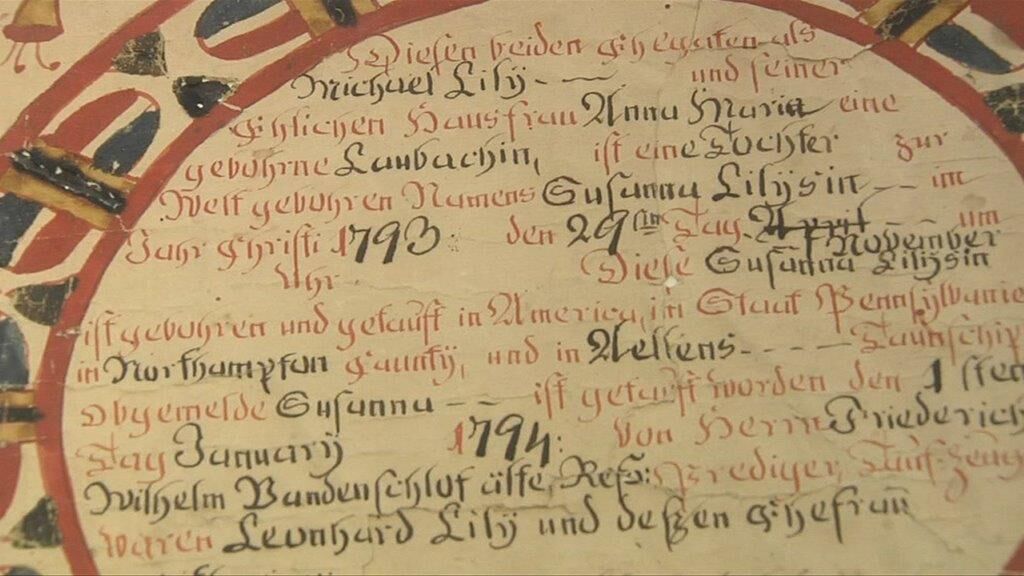 Diesen beiden Ehegaten als
Michael Lilÿ - — und seiner
Ehlichen Hausfrau Anna Maria eine
gebohrne Laubachin, ist eine Tochter zur
Welt gebohren Namens Susanna Lilÿsin — im
Jahr Christi 1793: den 29ten Tag — um
November
Uhr Diese Susanna Lilÿsin
ist gebohren und getauft in America, im Staat Pennsylvanie
in Northampton Caunty, und in Aellens - - - - — Taunschip
Obgemelde Susanna — — ist getauft worden den 1sten
Tag Januarÿ 1794: Von Herrn Friederich
Wilhelm Vandenschlot älte, Ref: Prediger, Tauf-Zeug
waren Leonhard Lilÿ und deßen Ehefrau